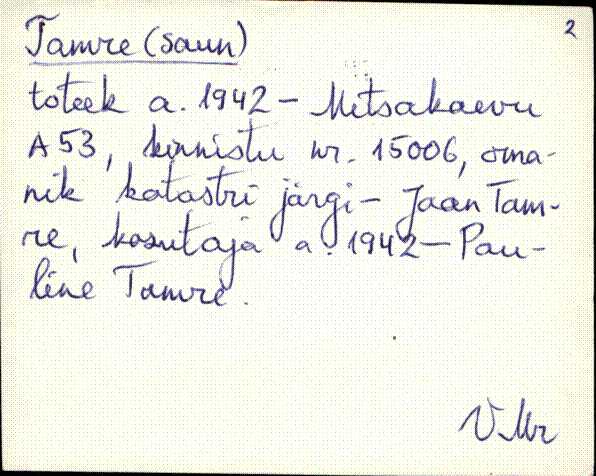 2
Tamre (saun)
toteek a. 1942 - Metsakaevu
A 53, kinnistu nr. 15006, oma-
nik katastri järgi - Jaan Tam-
re, kasutaja a. 1942 - Pau-
line Tamre.
V. Mr